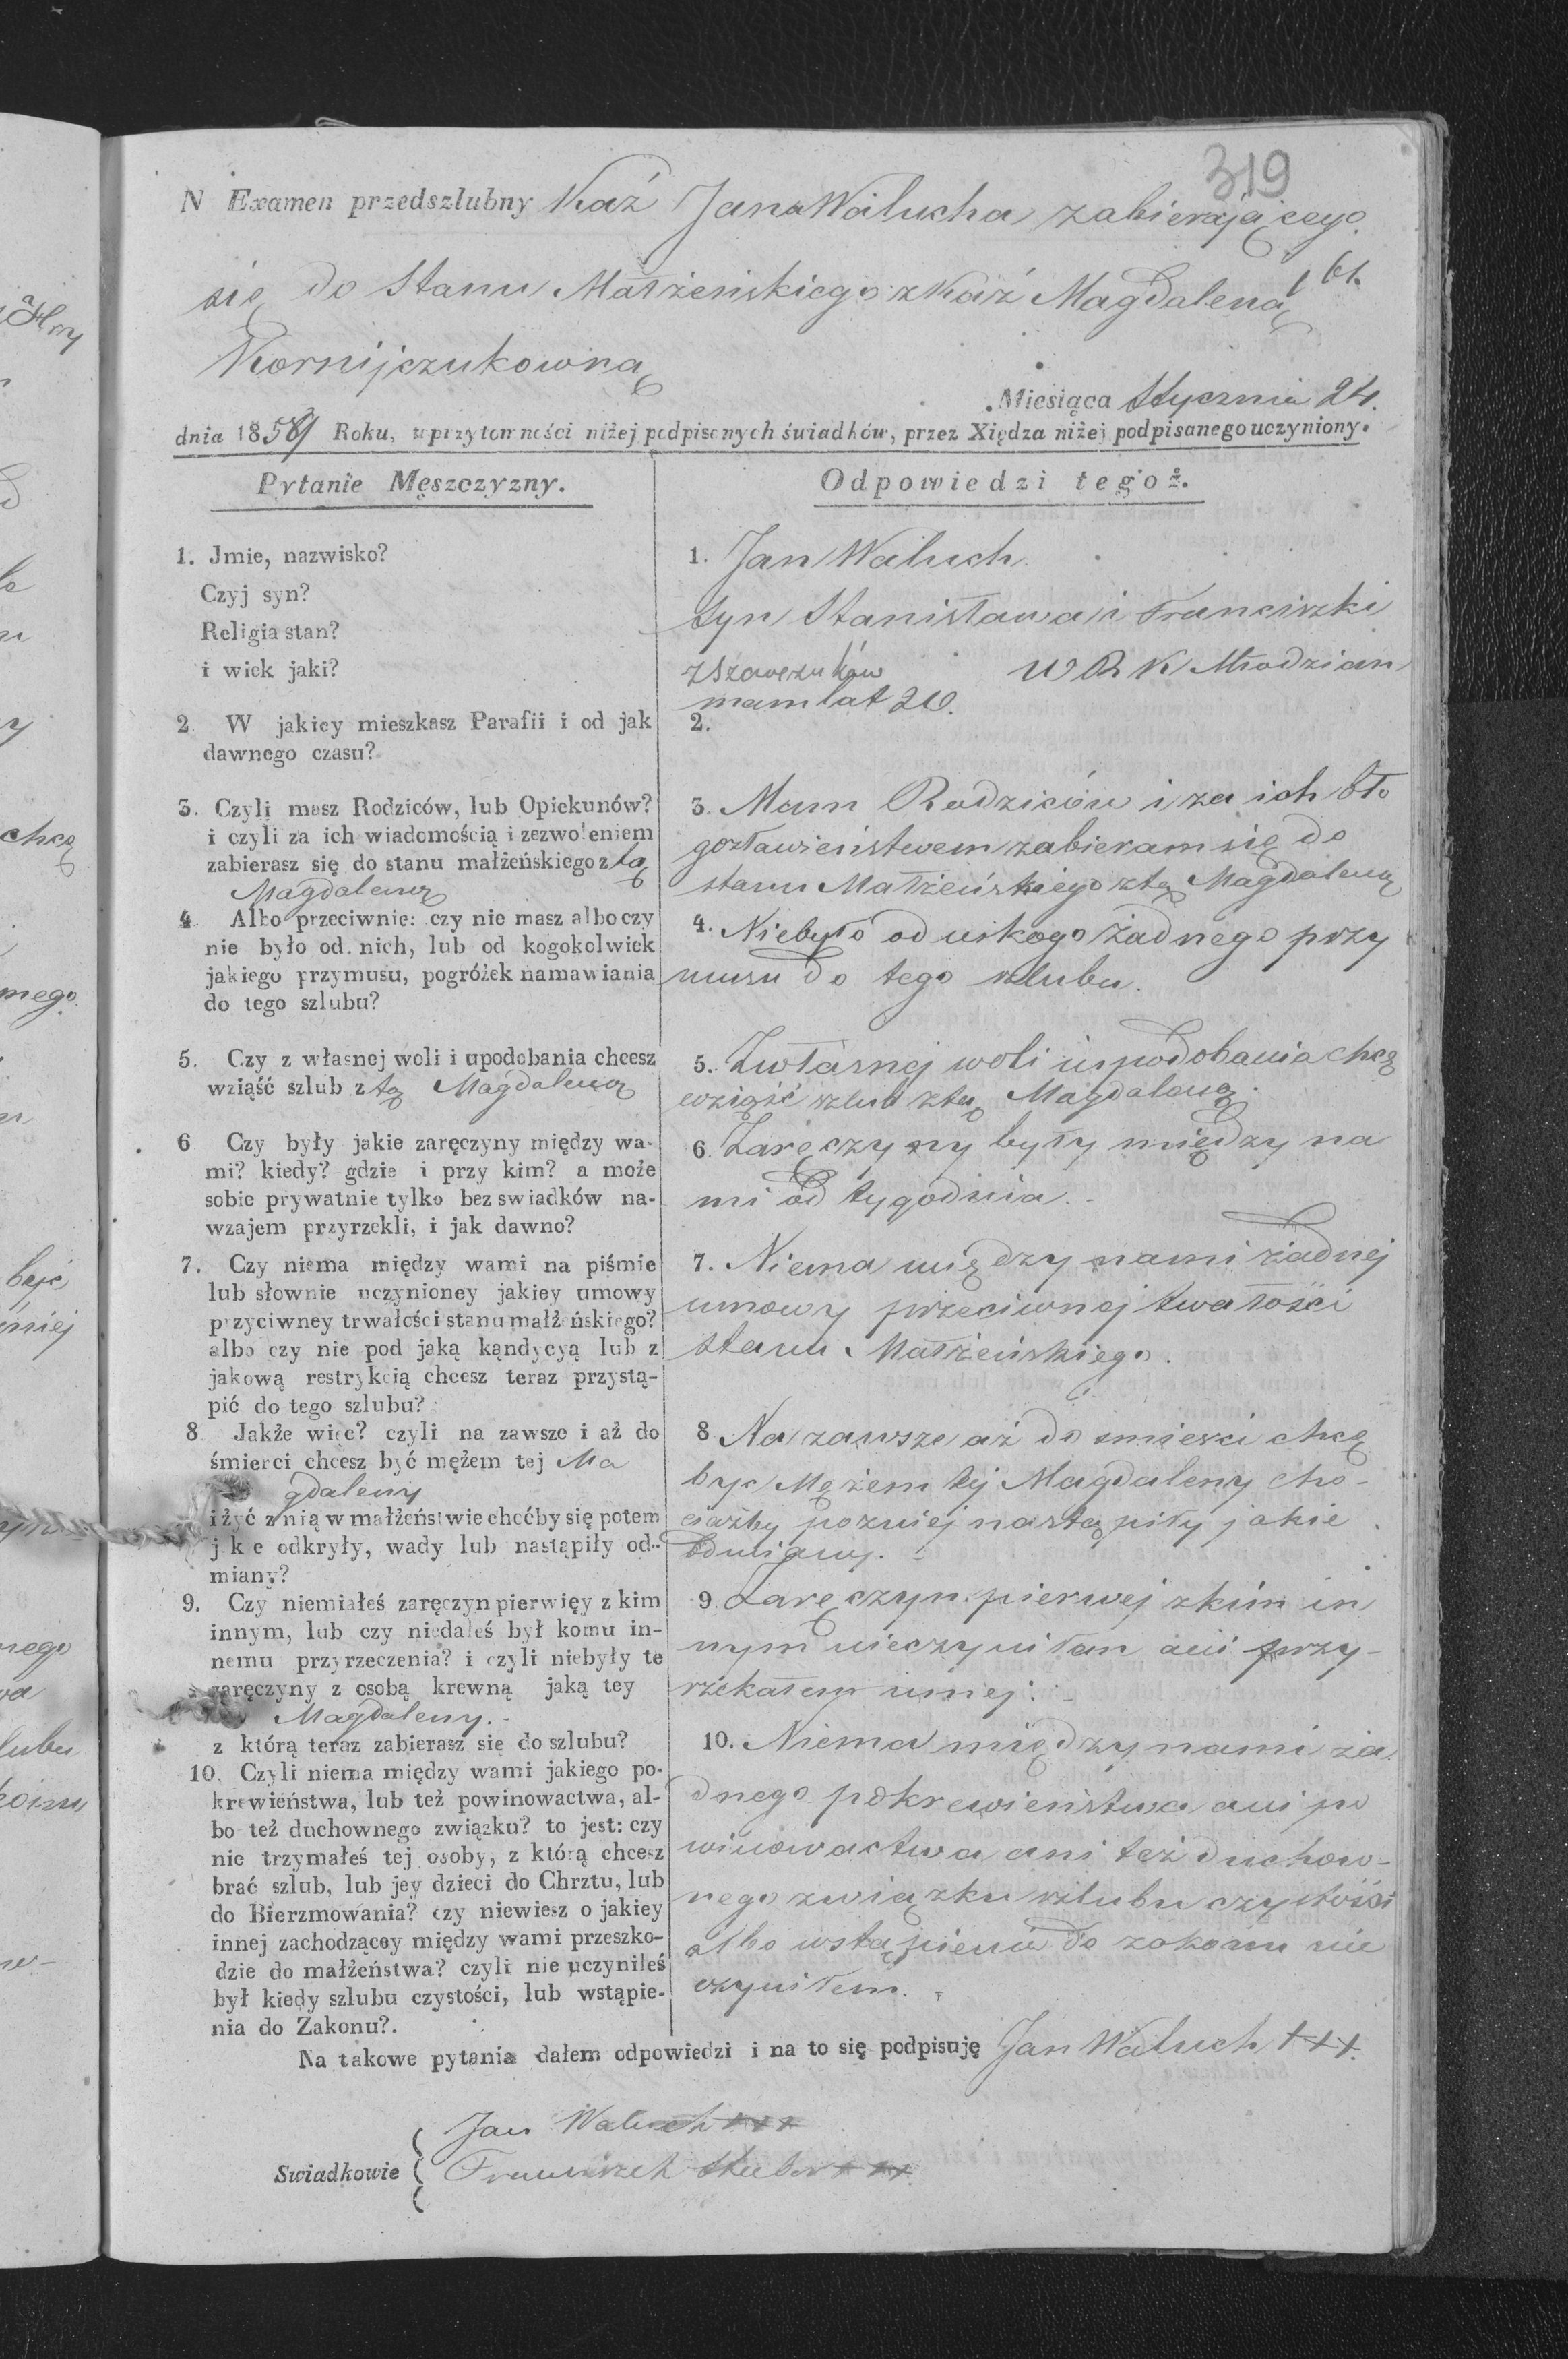 319
N Examen przedszlubny Kaź Jana Walucha zabierającego
się do Stanu Małżeńskiego z Kaź Magdaleną
161.
Kornijczukowną
Miesiąca Stycznia 24.
dnia 1859 Roku, w przytomności niżej podpisanych świadków, przez Xiędza niżej podpisanego uczyniony.
Pytanie Męszczyzny.
1. Jmie, nazwisko?
Czyj syn?
Religia stan?
i wiek jaki?
2. W jakiey mieszkasz Parafii i od jak
dawnego czasu?
3. Czyli masz Rodziców, lub Opiekunów?
i czyli za ich wiadomością i zezwoleniem
zabierasz się do stanu małżeńskiego z tą
Magdaleną
4 Albo przeciwnie: czy nie masz albo czy
nie było od. nich, lub od kogokolwiek
jakiego przymusu, pogróżek namawiania
do tego szlubu?
5. Czy z własnej woli i upodobania chcesz
wziąść szlub z tą Magdaleną
6 Czy były jakie zaręczyny między wa-
mi? kiedy? gdzie i przy kim? a może
sobie prywatnie tylko bez swiadków na-
wzajem przyrzekli, i jak dawno?
7. Czy niema między wami na piśmie
lub słownie uczynioney jakiey umowy
przyciwney trwałości stanu małżeńskiego?
albo czy nie pod jaką kądycyą lub z
jakową restrykcią chcesz teraz przystą-
pić do tego szlubu?
8 Jakże więc? czyli na zawsze i aż do
śmierci chcesz być mężem tej Ma
gdaleny
i żyć z nią w małżeństwie choćby się potem
jakie odkryły, wady lub nastąpiły od-
miany?
9. Czy niemiałeś zaręczyn pierwięy z kim
innym, lub czy niedałeś był komu in-
nemu przyrzeczenia? i czyli niebyły te
zaręczyny z osobą krewną jaką tey
Magdaleny.-
z którą teraz zabierasz się do szlubu?
10. Czyli niema między wami jakiego po-
krewieństwa, lub też powinowactwa, al-
bo też duchownego związku? to jest: czy
nie trzymałeś tej osoby, z którą chcesz
brać szlub, lub jey dzieci do Chrztu, lub
do Bierzmowania? czy niewiesz o jakiey
innej zachodzącey między wami przeszko-
dzie do małżeństwa? czyli nie uczyniłeś
był kiedy szlubu czystości, lub wstąpie-
nia do Zakonu?.
Odpowiedzi tegoż.
1. Jan Waluch
Syn Stanisława i Franciszki
z Szawczuków W R K Młodzian
mam lat 20.
2.
3. Mam Rodziców i za ich bło
gosławieństwem zabieram się do
stanu Małżeńskiego z tą Magdaleną
4. Niebyło od nikogo żadnego przy
musu do tego szlubu.
5. Zwłasnej woli i upodobania chcę
wziąść szlub z tą Magdaleną.
6. Zaręczyny były między na
mi od tygodnia.-
7. Niema między nami żadnej
umowy przeciwnej twałości
stanu Małżeńskiego.
8. Na zawsze aż do smierci chcę
byc Mężem tej Magdaleny cho-
ciażby pozniej nastąpiły jakie
odmiany.
9. Zaręczyn pierwej z kim in
nym nieczyniłam ani przy-
rzekałem innej.-
10. Niema między nami ża
dnego pokrewieństwa ani po
winowactwa ani też duchow-
nego związku szlubu czystości
albo wstąpienia do zakonu nie
czyniłem.
Na takowe pytania dałem odpowiedzi i na to się podpisuję Jan Waluch +++.
Jan Waluch +++
Swiadkowie
Franciszek +++